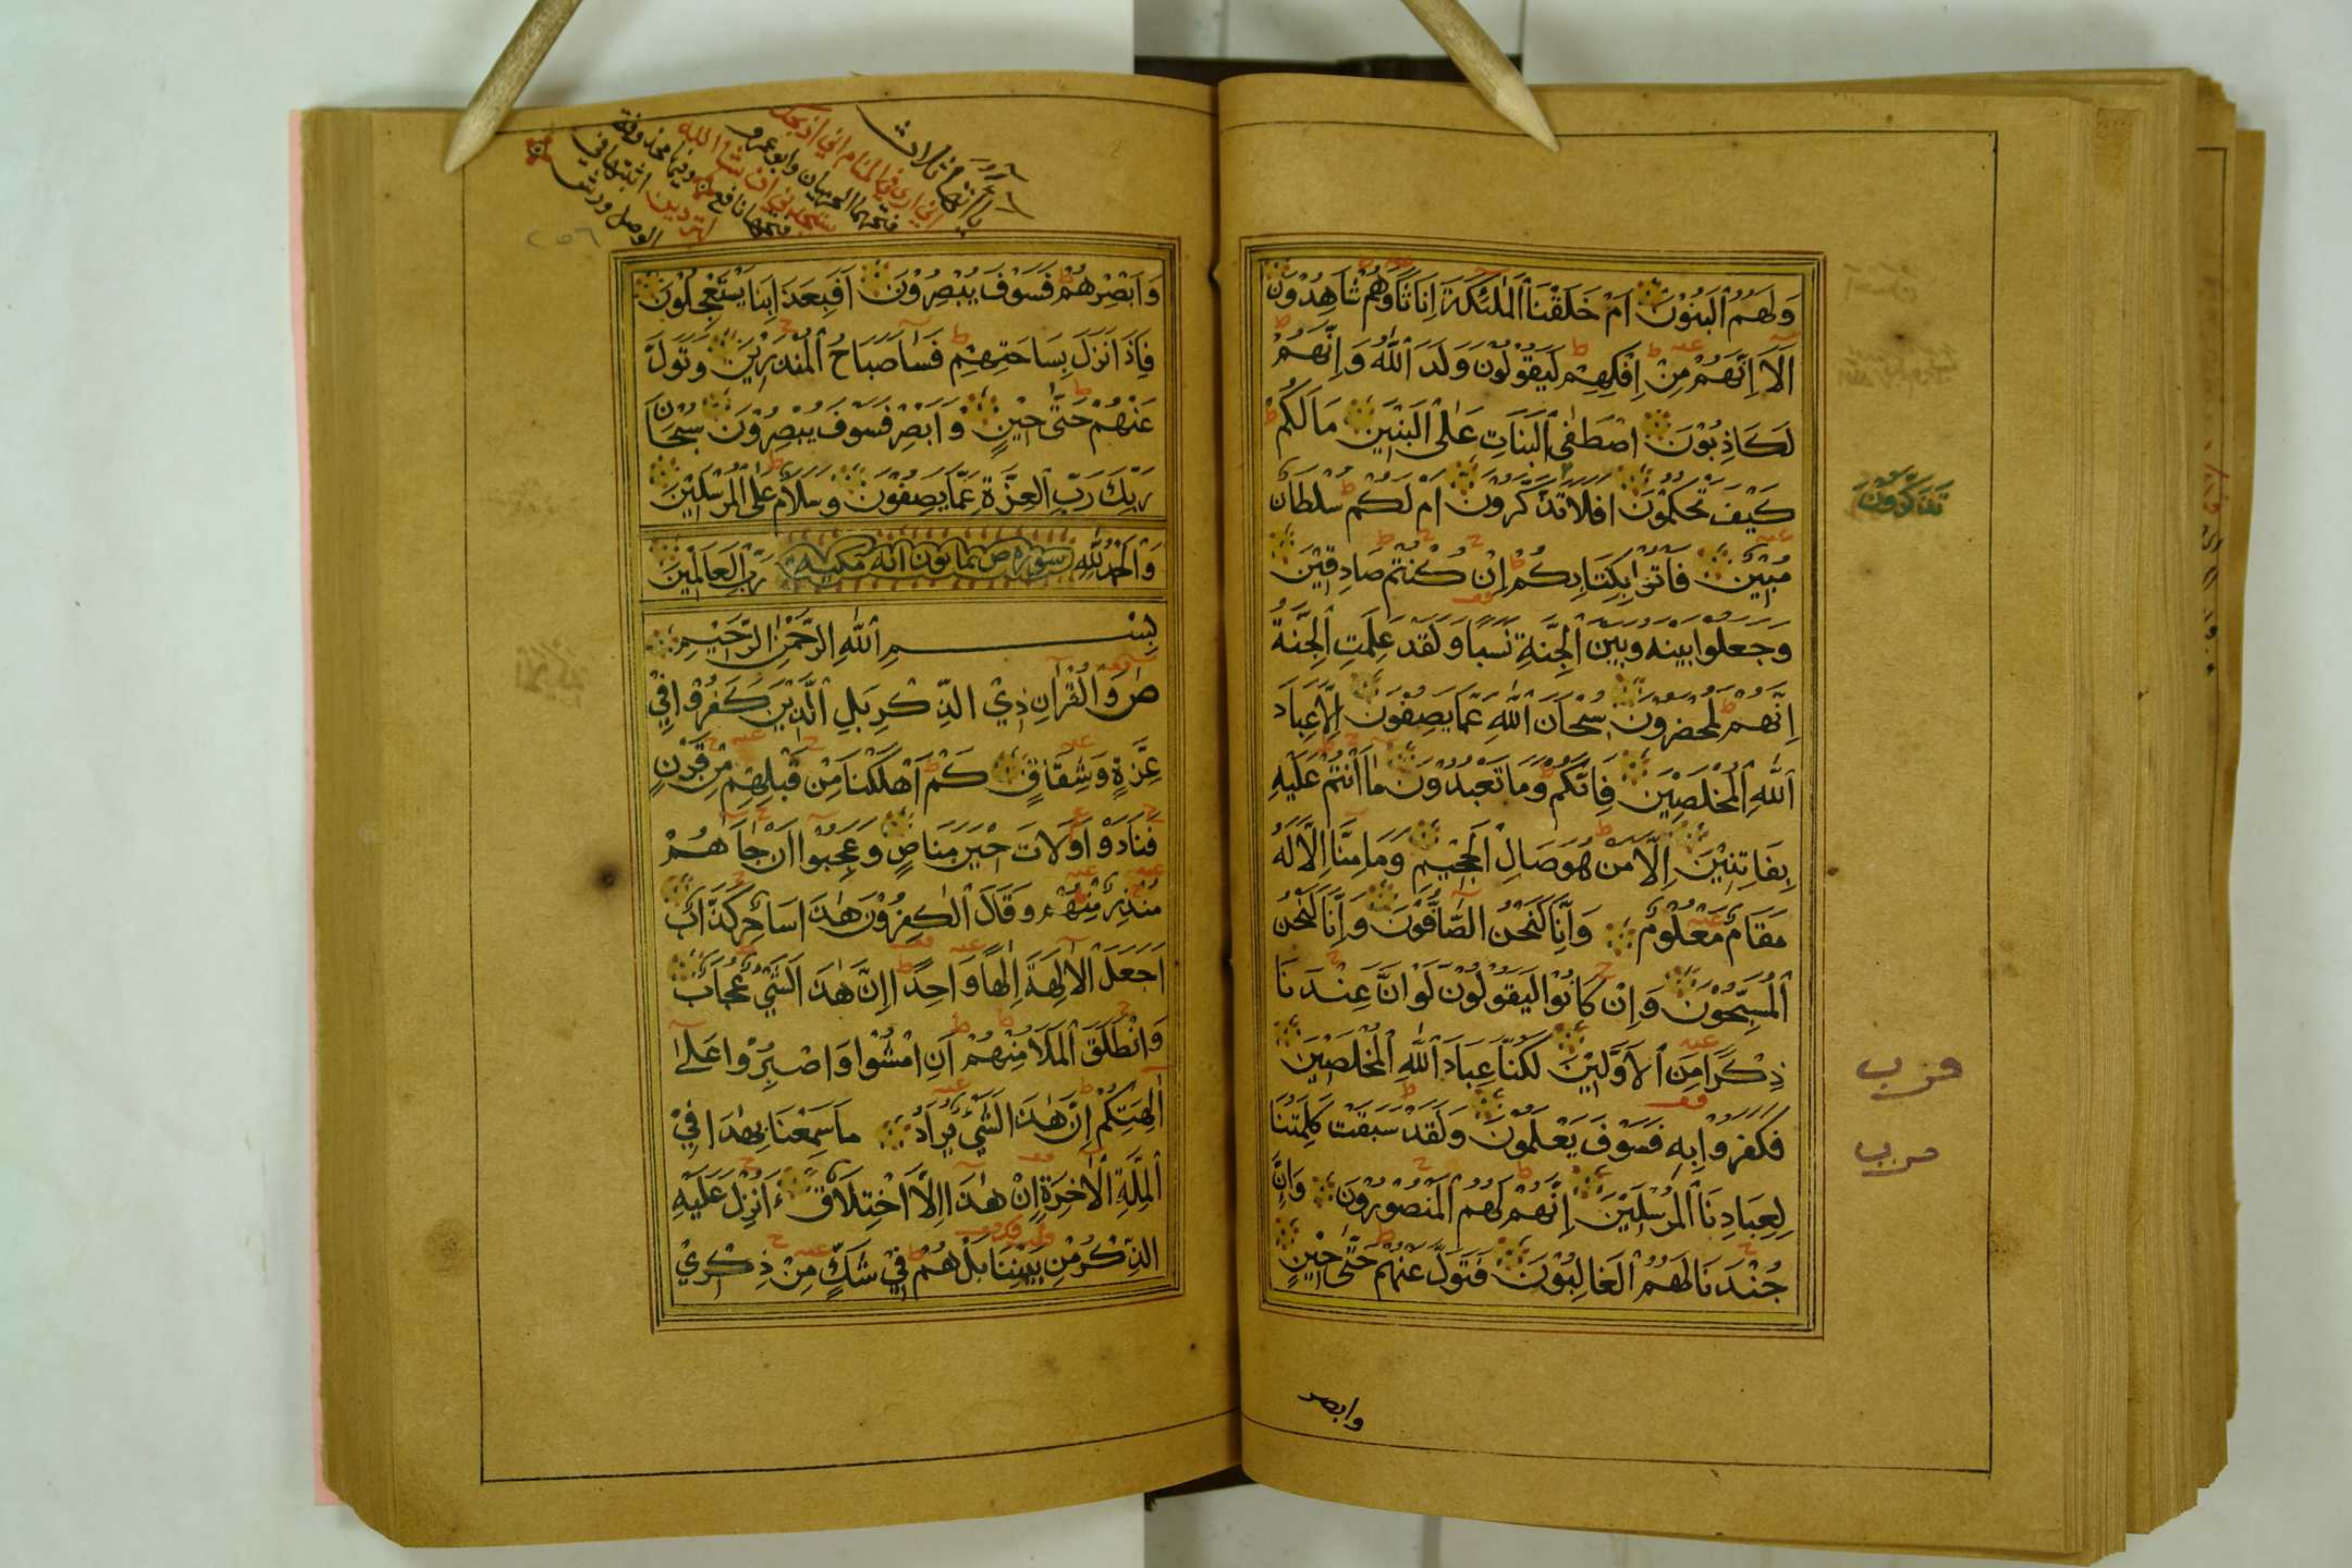 وَلَهُمُ الْبَنُوْنَ اَمْ خَلَقْنَا الْمَلٰئِكَةَ اِنَاثًا وَهُمْ شَاهِدُوْنَ
اَلَا اِنَّهُمْ مِنْ اِفْكِهِمْ لَيَقُوْلُوْنَ وَلَدَ اللّٰهُ وَاِنَّهُمْ
لَكَاذِبُوْنَ اصْطَفَى الْبَنَاتِ عَلَى الْبَنِيْنَ مَا لَكُمْ
كَيْفَ تَحْكُمُوْنَ افلا تَذَكَّرُوْنَ اَمْ لَكُمْ سُلْطَانٌ
مُبِيْنٌ فَأتُوا بِكِتَابِكُمْ اِنْ كُنْتُمْ صَادِقِيْنَ
وَجَعَلُوا بَيْنَهُ وَبَيْنَ الْجِنَّةِ نَسَبًا وَلَقَدْ عَلِمَتِ الْجِنَّةُ
اِنَّهُمْ لَمُحْضَرُوْنَ سُبْحَانَ اللّٰهِ عَمَّا يَصِفُوْنَ اِلَّا عِبَادَ
اللّٰهِ الْمُخْلَصِيْنَ فَاِنَّكُمْ وَمَا تَعْبُدُوْنَ مَا اَنْتُمْ عَلَيْهِ
بِفَاتِنِيْنَ اِلَّا مَنْ هُوَ صَالِ الْجَحِيْمِ وَمَا مِنَّا اِلَّا لَهُ
مَقَامٌ مَعْلُوْمٌ وَاِنَّا لَنَحْنُ الصَّافُّوْنَ وَاِنَّا لَنَحْنُ
الْمُسَبِّحُوْنَ وَاِنْ كَانُوْا لَيَقُوْلُوْنَ لَوْ اَنَّ عِنْدَنَا
ذِكْرًا مِنَ الْاَوَّلِيْنَ لَكُنَّا عِبَادَ اللّٰهِ الْمُخْلَصِيْنَ
فَكَفَرُوْا بِهِ فَسَوْفَ يَعْلَمُوْنَ وَلَقَدْ سَبَقَتْ كَلِمَتُنَا
لِعِبَادِنَا الْمُرْسَلِيْنَ اِنَّهُمْ لَهُمُ الْمَنْصُوْرُوْنَ وَاِنَّ
جُنْدَنَا لَهُمُ الْغَالِبُوْنَ فَتَوَلَّ عَنْهُمْ حَتّٰى حِيْنٍ
تذكرون
حزب
حزب
وابصر
ياآتها ثلاث
اني ارى في المنام اني اذبحك
فتحهما الحرميان وابو عمرو
ستجدني ان شا الله
فتحها نافع وفيها محذوفة
لتردين اثبتها في
الوصل ورش
٢٥٦
وَاَبْصِرْهُمْ فَسَوْفَ يُبْصِرُوْنَ اَفَبِعَذَابِنَا يَسْتَعْجِلُوْنَ
فَاِذَا نَزَلَ بِسَاحَتِهِمْ فَسَاءَ صَبَاحُ الْمُنْذَرِيْنَ وَتَوَلَّ
عَنْهُمْ حَتّٰى حِيْنٍ وَاَبْصِرْ فَسَوْفَ يُبْصِرُوْنَ سُبْحَانَ
رَبِّكَ رَبِّ الْعِزَّةِ عَمَّا يَصِفُوْنَ وَسَلَامٌ عَلَى الْمُرْسَلِيْنَ
وَالْحَمْدُ لِلّٰهِ سورة ص ثمانون آية مكية رَبِّ الْعَالَمِيْنَ
بِسْمِ اللّٰهِ الرَّحْمٰنِ الرَّحِيْمِ
صٓ وَالْقُرْاٰنِ ذِي الذِّكْرِ بَلِ الَّذِيْنَ كَفَرُوْا فِيْ
عِزَّةٍ وَشِقَاقٍ كَمْ اَهْلَكْنَا مِنْ قَبْلِهِمْ مِنْ قَرْنٍ
فَنَادَوْا وَلَاتَ حِيْنَ مَنَاصٍ وَعَجِبُوا اَنْ جَاءَهُمْ
مُنْذِرٌ مِنْهُمْ وَقَالَ الْكٰفِرُوْنَ هٰذَا سَاحِرٌ كَذَّابٌ
اَجَعَلَ الْاٰلِهَةَ اِلٰهًا وَاحِدًا اِنَّ هٰذَا لَشَيْءٌ عُجَابٌ
وَانْطَلَقَ الْمَلَأُ مِنْهُمْ اَنِ امْشُوْا وَاصْبِرُوْا عَلٰى
اٰلِهَتِكُمْ اِنَّ هٰذَا لَشَيْءٌ يُرَادُ مَا سَمِعْنَا بِهٰذَا فِيْ
الْمِلَّةِ الْاٰخِرَةِ اِنْ هٰذَا اِلَّا اخْتِلَاقٌ ءَاُنْزِلَ عَلَيْهِ
الذِّكْرُ مِنْ بَيْنِنَا بَلْ هُمْ فِيْ شَكٍّ مِنْ ذِكْرِيْ